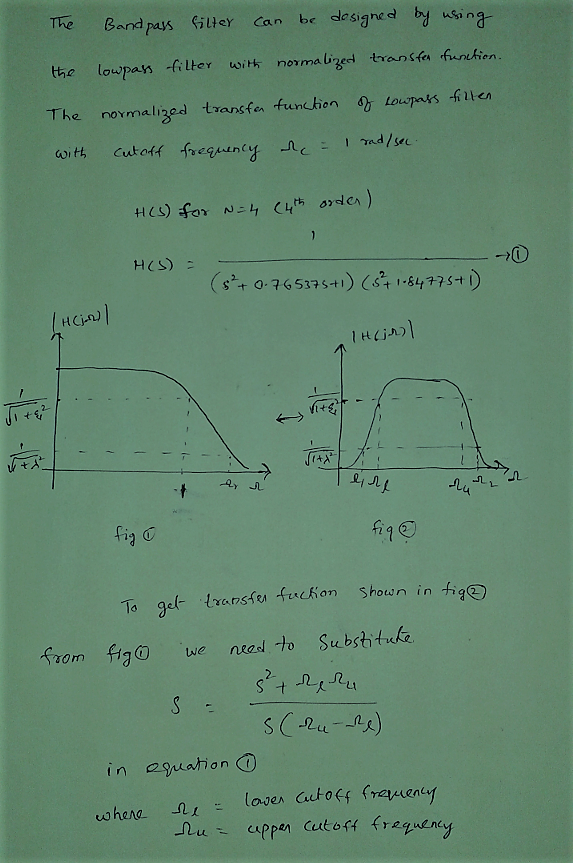 The Bandpass filter can be designed by using
the lowpass filter with normalized transfer function.
The normalized transfer function of Lowpass filter
with cutoff frequency Ωc = 1 rad/sec.
H(s) for N=4 (4th order)
H(s) = 1 / (s²+0.76537s+1) (s²+1.8477s+1) → ①
|H(jΩ)|
|H(jΩ)|
1/√1+ε²
1/√1+λ²
1
Ωr Ω
↔
1/√1+ε²
1/√1+λ²
Ω1 Ωl Ωu Ω2 Ω
fig ①
fig ②
To get transfer fuction shown in fig②
from fig① we need to Substitute
S = s²+ΩlΩu / s(Ωu-Ωl)
in equation ①
where Ωl = lower cutoff frequency
Ωu = upper cutoff frequency